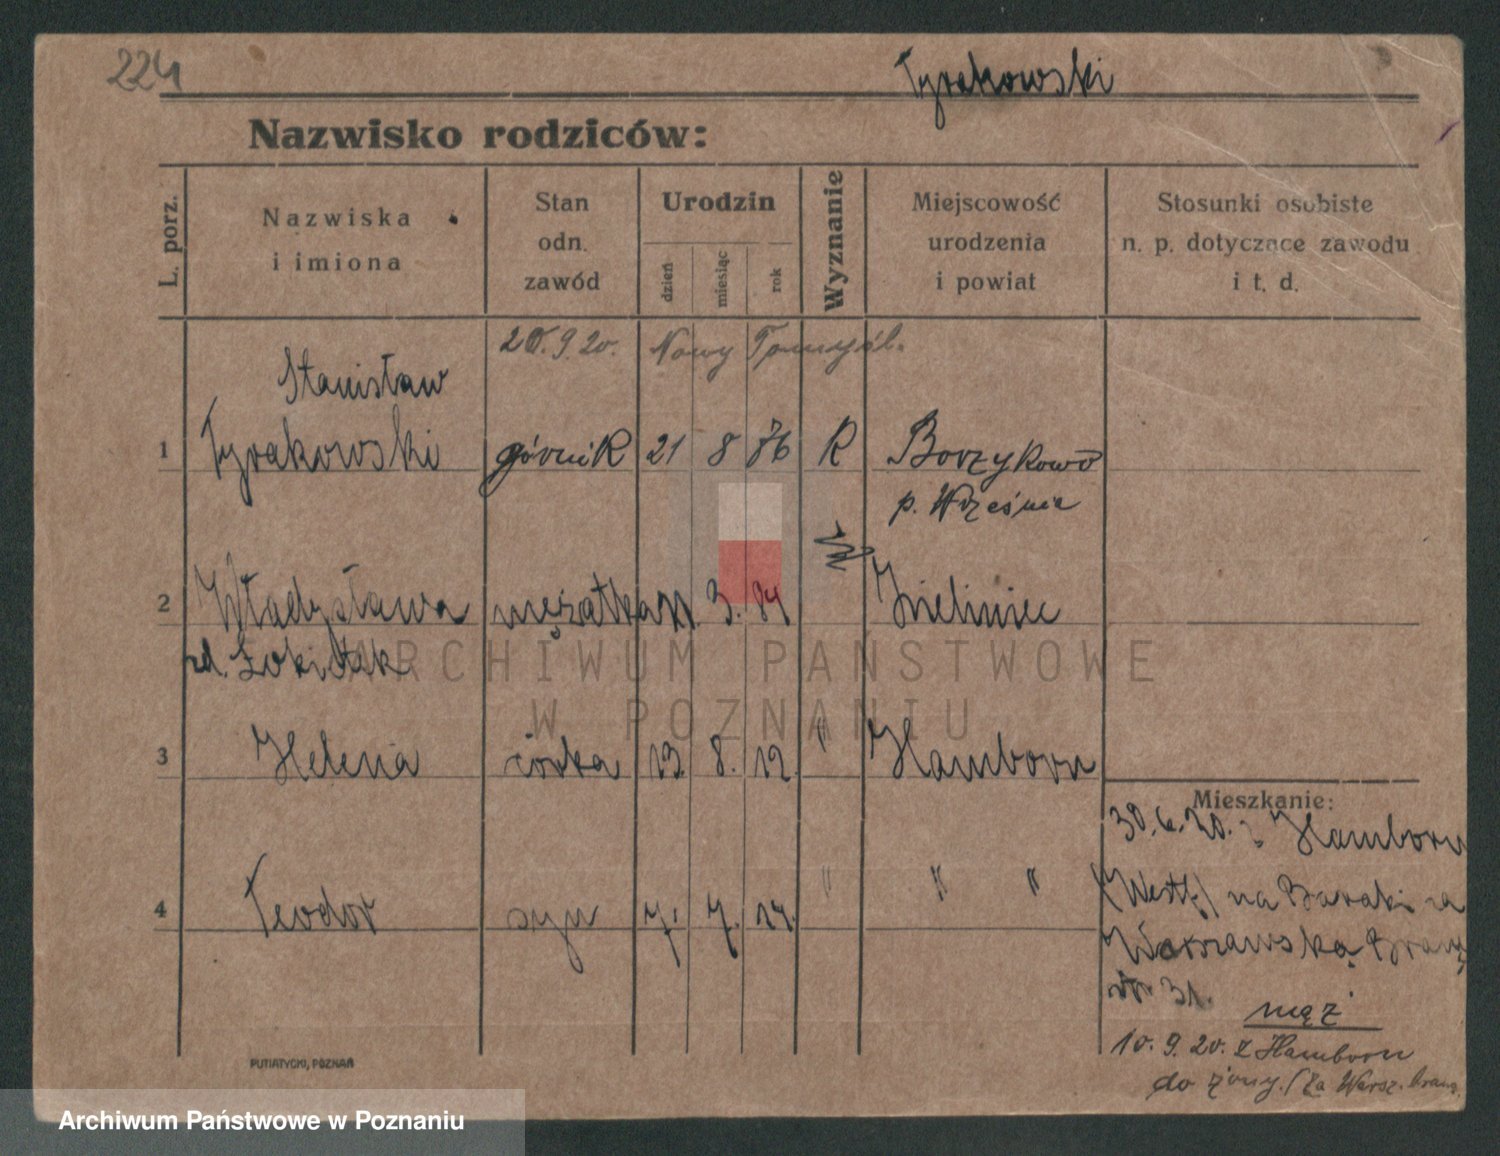 224
Tyrakowski
Nazwisko rodziców:
L. porz.
Nazwiska
i imiona
Stan
odn.
zawód
Urodzin
dzień
miesiąc
rok
Wyznanie
Miejscowość
urodzenia
i powiat
Stosunki osobiste
n. p. dotyczące zawodu
i t. d.
9.20. Nowy Tomyśl.
Stanisław
1 Tyrakowski górnik 21 8 76 R Borzykowo
p. Września
2 Władysława mężatka 3. 84 Zieliniec
zd.
ARCHIWUM PAŃSTWOWE
W POZNANIU
3 Helena córka 13. 8. 12. " Hamborn
Mieszkanie:
30.6.20. z Hamborn
4 Teodor syn 7. 7. 14. " " "
(Westf) na Baraki za
Warszawską Bramą
nr 31.
mąż
10.9.20. z Hamborn
do żony. (za Warsz. bramą
PUTIATYCKI, POZNAŃ
Archiwum Państwowe w Poznaniu